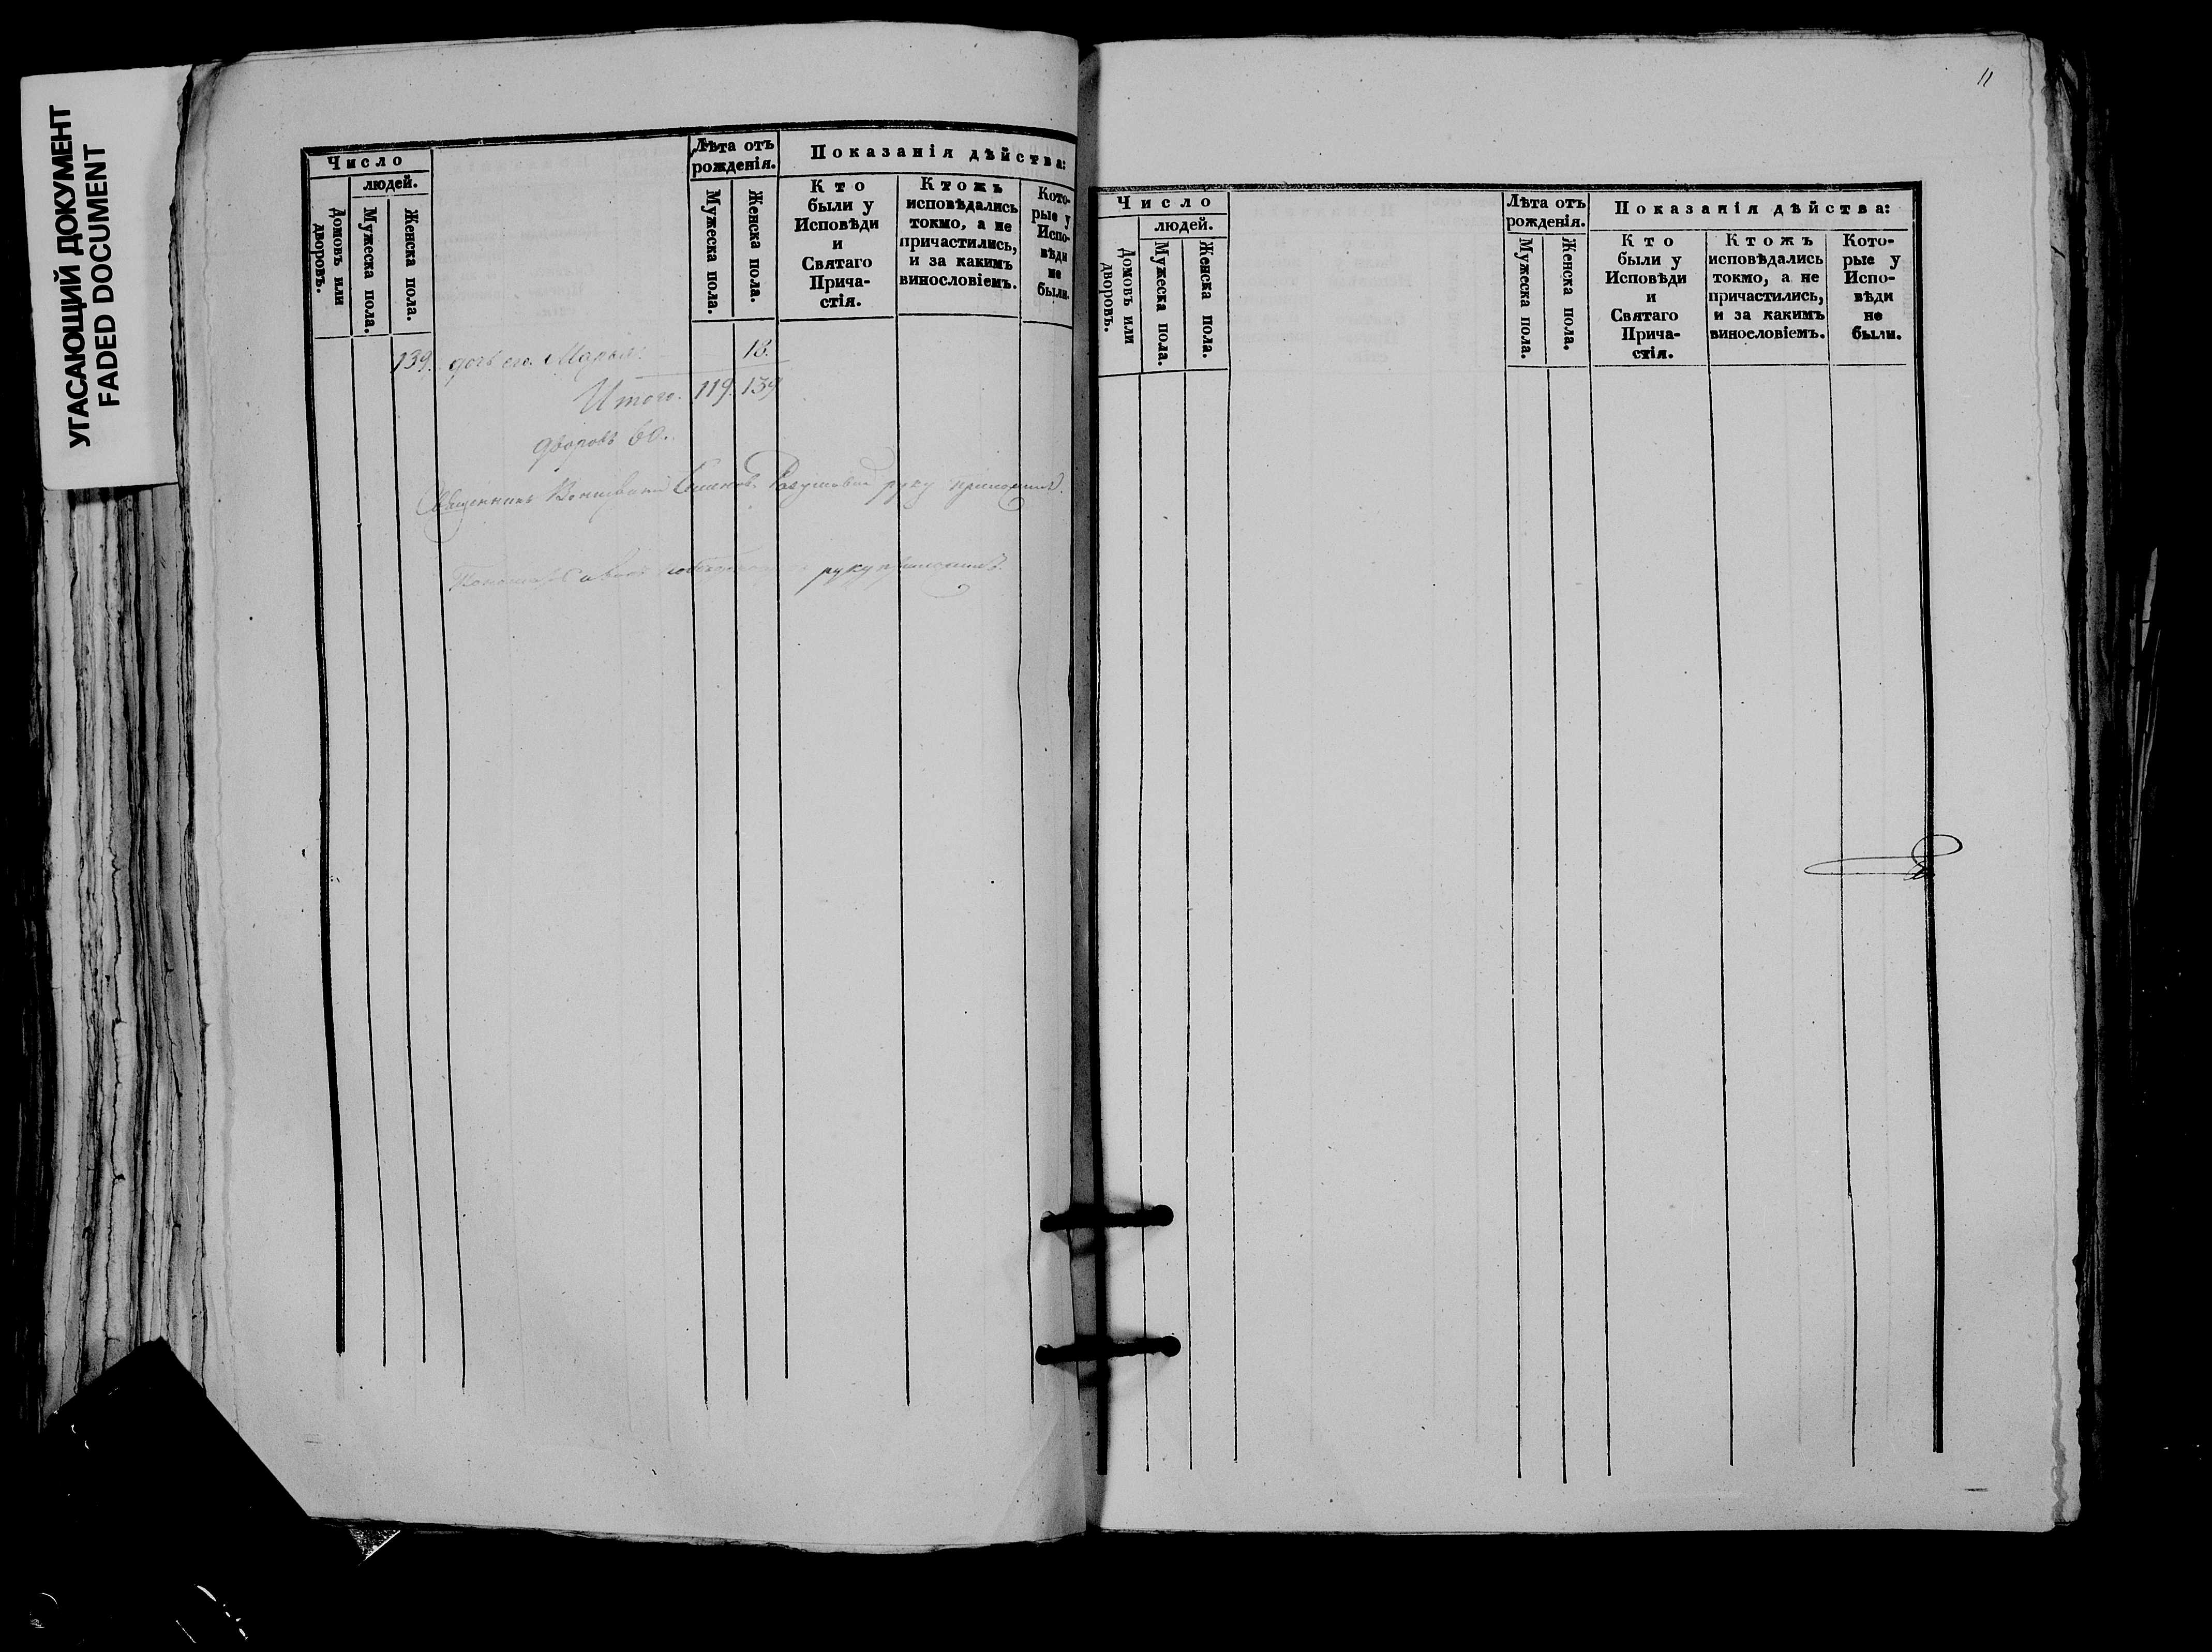 УГАСАЮЩИЙ ДОКУМЕНТ
FADED DOCUMENT
Число
людей.
Домовъ или
дворовъ.
Мужеска пола.
Женска пола.
Лѣта отъ
рожденія.
Мужеска пола.
Женска пола.
Показанія дѣйства:
Кто
были у
Исповѣди
и
Святаго
Прича-
стія.
Ктожъ
исповѣдались
токмо, а не
причастились,
и за какимъ
винословіемъ.
Кото-
рые у
Испо-
вѣди
не
были.
139. дочь его Марья 13.
Итого. 119. 139
дворовъ 60.
Священникъ руку приложилъ.
Пономарь руку приложилъ.
11
Число
людей.
Домовъ или
дворовъ.
Мужеска пола.
Женска пола.
Лѣта отъ
рожденія.
Мужеска пола.
Женска пола.
Показанія дѣйства:
Кто
были у
Исповѣди
и
Святаго
Прича-
стія.
Ктожъ
исповѣдались
токмо, а не
причастились,
и за какимъ
винословіемъ.
Кото-
рые у
Испо-
вѣди
не
были.